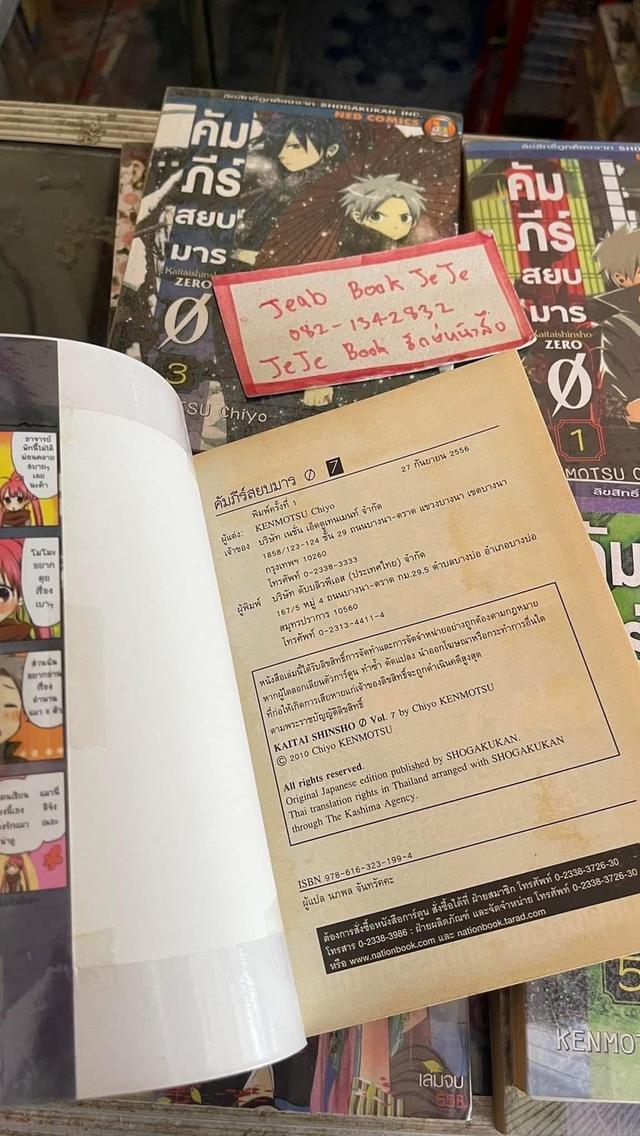 ลิขสิทธิ์ถูกต้องจาก SHOGAKUKAN INC.
NED COMICS
คัม
ภีร์
สยบ
มาร
Kaitaishinsho
ZERO
Ø
3
TSU Chiyo
ลิขสิทธิ์ถูกต้องจาก SHO
คัม
ภีร์
สยบ
มาร
Kaitaishinsho
ZERO
Ø
1
MOTSU C
Jeab Book JeJe
082-1342832
JeJe Book รักษ์หนังสือ
อาจารย์
พักนี้ไม่ได้
ผ่อนคลาย
สบายๆ
เลย
นะค้า
โมโมะ
อยาก
คุย
เรื่อง
เบาๆ
ส่วนฉัน
อยากอ่าน
เรื่อง
ตำนาน
แมว 8 ตัว
คัมภีร์สยบมาร Ø 7
พิมพ์ครั้งที่ 1
27 กันยายน 2556
ผู้แต่ง: KENMOTSU Chiyo
เจ้าของ บริษัท เนชั่น เอ็ดดูเทนเมนท์ จำกัด
1858/123-124 ชั้น 29 ถนนบางนา-ตราด แขวงบางนา เขตบางนา
กรุงเทพฯ 10260
โทรศัพท์ 0-2338-3333
ผู้พิมพ์ บริษัท ดับบลิวพีเอส (ประเทศไทย) จำกัด
167/5 หมู่ 4 ถนนบางนา-ตราด กม.29.5 ตำบลบางบ่อ อำเภอบางบ่อ
สมุทรปราการ 10560
โทรศัพท์ 0-2313-4411-4
หนังสือเล่มนี้ได้รับลิขสิทธิ์การจัดทำและการจัดจำหน่ายอย่างถูกต้องตามกฎหมาย
หากผู้ใดลอกเลียนตัวการ์ตูน ทำซ้ำ ดัดแปลง นำออกโฆษณาหรือกระทำการอื่นใด
ที่ก่อให้เกิดการเสียหายแก่เจ้าของลิขสิทธิ์จะถูกดำเนินคดีสูงสุด
ตามพระราชบัญญัติลิขสิทธิ์
KAITAI SHINSHO Ø Vol. 7 by Chiyo KENMOTSU
© 2010 Chiyo KENMOTSU
All rights reserved.
Original Japanese edition published by SHOGAKUKAN.
Thai translation rights in Thailand arranged with SHOGAKUKAN
through The Kashima Agency.
ISBN 978-616-323-199-4
ผู้แปล นภพล จันทรัคคะ
ต้องการสั่งซื้อหนังสือการ์ตูน สั่งซื้อได้ที่ ฝ่ายสมาชิก โทรศัพท์ 0-2338-3726-30
โทรสาร 0-2338-3986 : ฝ่ายผลิตภัณฑ์ และจัดจำหน่าย โทรศัพท์ 0-2338-3726-30
หรือ www.nationbook.com และ nationbook.tarad.com
ลิขสิทธิ์
5
KENMO
เล่มจบ
55B